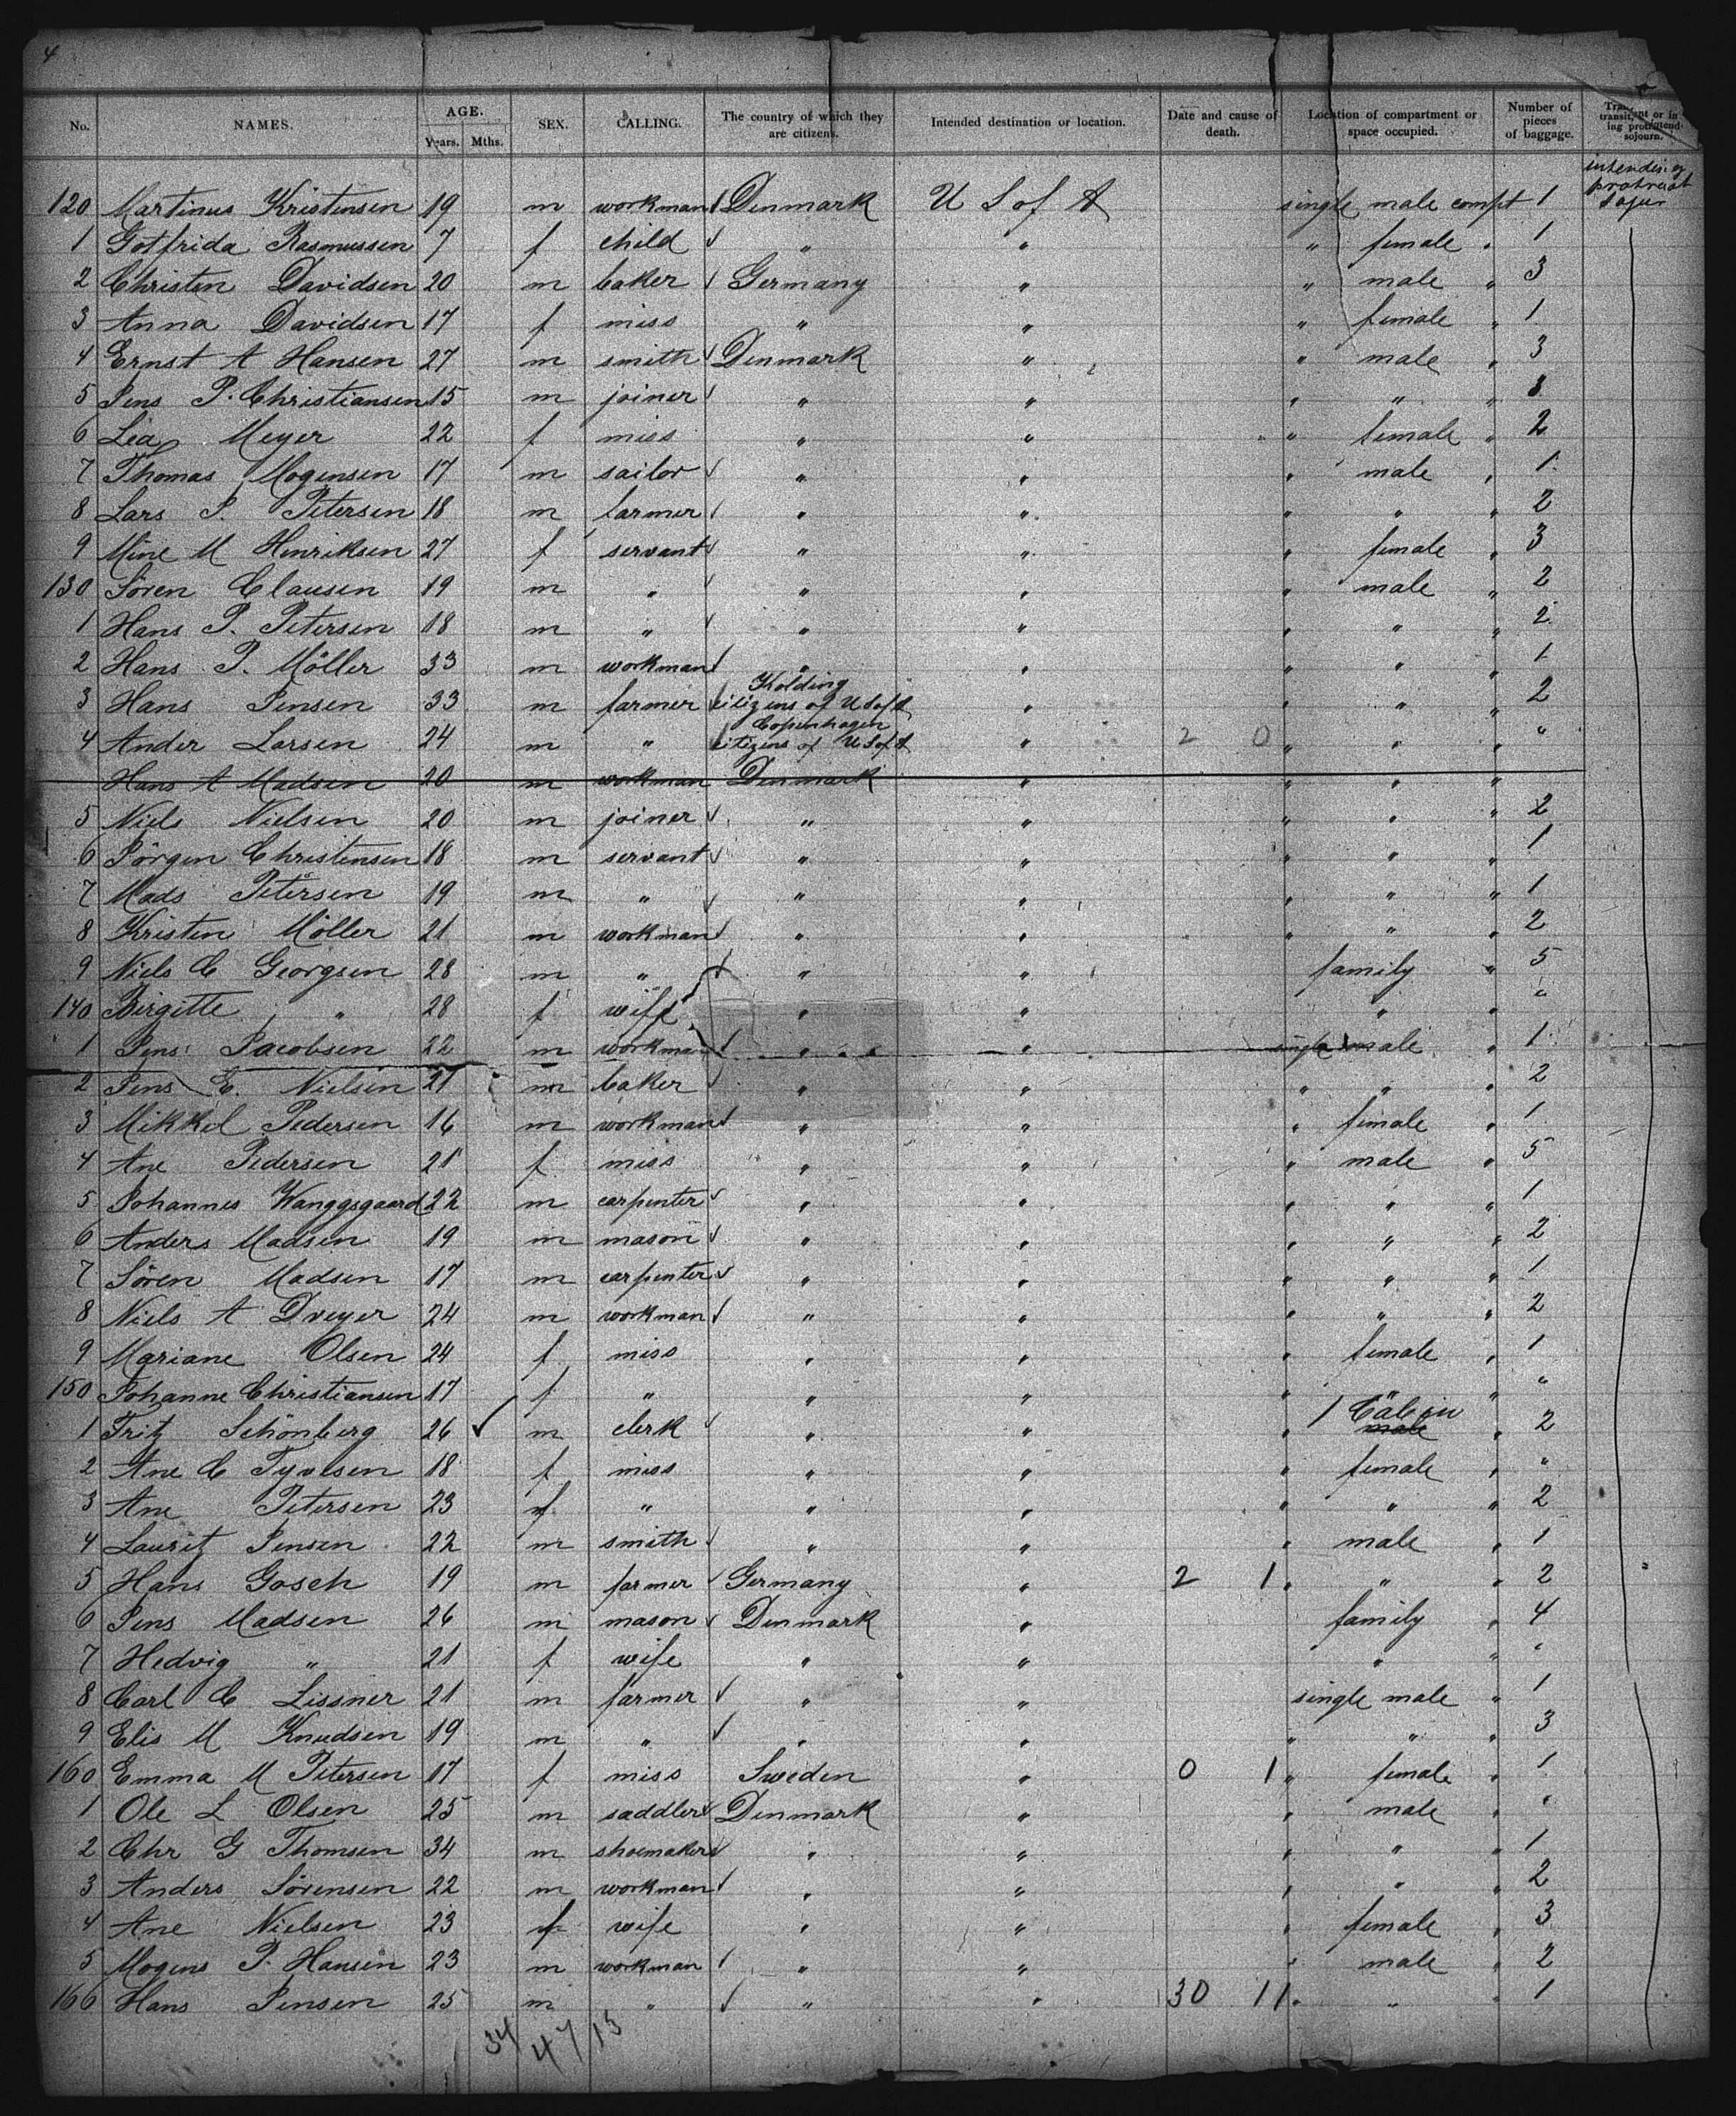 4
No. NAMES. AGE. Years. Mths. SEX. CALLING. The country of which they are citizens. Intended destination or location. Date and cause of death. Location of compartment or space occupied. Number of pieces of baggage.
intending
protract
sojur
120 Martinus Kristensen 19 m workman Denmark U S of A single male compt 1
1 Gotfrida Rasmussen 7 f child " " " female " 1
2 Christen Davidsen 20 m baker Germany " " male " 3
3 Anna Davidsen 17 f miss " " " female " 1
4 Ernst A Hansen 27 m smith Denmark " " male " 3
5 Jens P. Christiansen 15 m joiner " " " " "
6 Lea Meyer 22 f miss " " " female " 2
7 Thomas Mogensen 17 m sailor " " " male " 1
8 Lars P. Petersen 18 m farmer " " " " " 2
9 Mine M Henriksen 27 f servant " " " female " 3
130 Sören Clausen 19 m " " " " male " 2
1 Hans P. Petersen 18 m " " " " " " 2
2 Hans P. Möller 33 m workman " " " " " 1
3 Hans Jensen 33 m farmer Kolding citizens of U S of A " " " " 2
4 Ander Larsen 24 m " Copenhagen citizens of U S of A " 2 0 " " " "
Hans A Madsen 20 m workman Denmark " " " "
5 Niels Nielsen 20 m joiner " " " " " 2
6 Jörgen Christensen 18 m servant " " " " " 1
7 Mads Petersen 19 m " " " " " " 1
8 Kristen Möller 21 m workman " " " " " 2
9 Niels C Georgsen 28 m " " " family " 5
140 Birgitte " 28 f wife " " " " "
1 Jens Jacobsen 22 m workman " " single male " 1
2 Jens C. Nielsen 21 m baker " " " " " 2
3 Mikkel Pedersen 16 m workman " " " female " 1
4 Ane Pedersen 21 f miss " " " male " 5
5 Johannes Wanggsgaard 22 m carpenter " " " " " 1
6 Anders Madsen 19 m mason " " " " " 2
7 Sören Madsen 17 m carpenter " " " " " 1
8 Niels A Dreyer 24 m workman " " " " " 2
9 Mariane Olsen 24 f miss " " " female " 1
150 Johanne Christiansen 17 f " " " " " " "
1 Fritz Schönberg 26 m clerk " " " 1 Cabin male " 2
2 Ane C 18 f miss " " " female " "
3 Ane Petersen 23 f " " " " " " 2
4 Lauritz Jensen 22 m smith " " " male " 1
5 Hans Gosch 19 m farmer Germany " 2 1 " " " 2
6 Jens Madsen 26 m mason Denmark " family " 4
7 Hedvig " 21 f wife " " " " "
8 Carl C Lissner 21 m farmer " " single male " 1
9 Elis M Knudsen 19 m " " " " " " 3
160 Emma M Petersen 17 f miss Sweden " 0 1 " female " 1
1 Ole L Olsen 25 m saddler Denmark " " male " "
2 Chr G Thomsen 34 m shoemaker " " " " " 1
3 Anders Sörensen 22 m workman " " " " " 2
4 Ane Nielsen 23 f wife " " " female " 3
5 Mogens P. Hansen 23 m workman " " " male " 2
166 Hans Jensen 25 m " " " 30 11 " " " 1
34 47 13